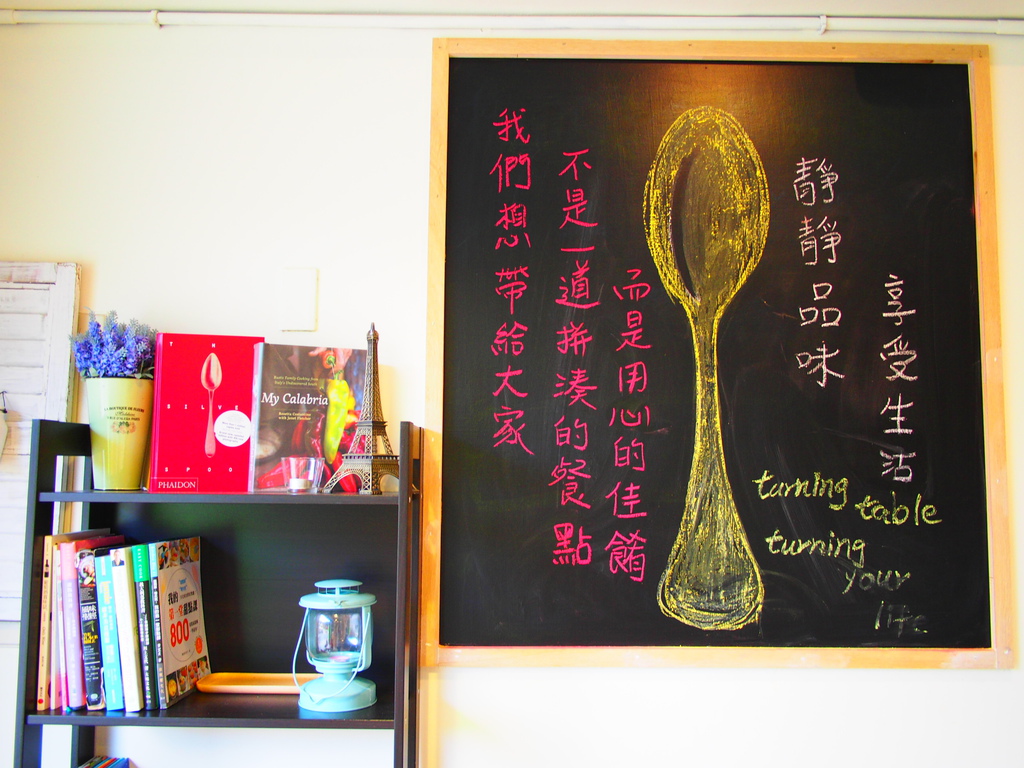 我們想帶給大家
不是一道拼湊的餐點
而是用心的佳餚
靜靜品味
享受生活
turning table
turning
your
life
TH
SILVE
SPOO
PHAIDON
My Calabria
我的
第一堂甜點課
800